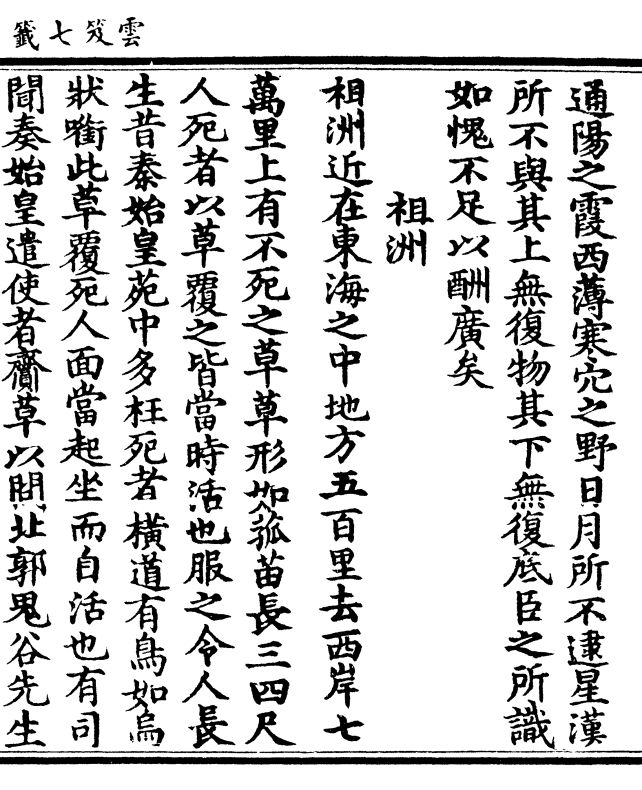 雲笈七籤
通陽之霞西薄寒穴之野日月所不逮星漢
所不與其上無復物其下無復底臣之所識
如愧不足以酬廣矣
祖洲
祖洲近在東海之中地方五百里去西岸七
萬里上有不死之草草形如菰苗長三四尺
人死者以草覆之皆當時活也服之令人長
生昔秦始皇苑中多枉死者橫道有鳥如烏
狀㘅此草覆死人面當起坐而自活也有司
聞奏始皇遣使者齎草以問北郭鬼谷先生